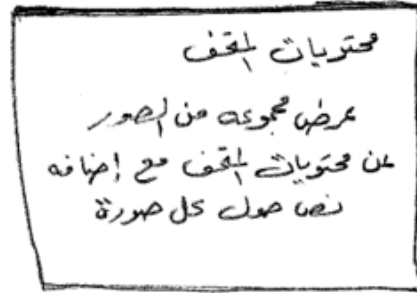 محتويات المتحف
عرض مجموعه من الصور
عن محتويات المتحف مع إضافه
نص حول كل صورة